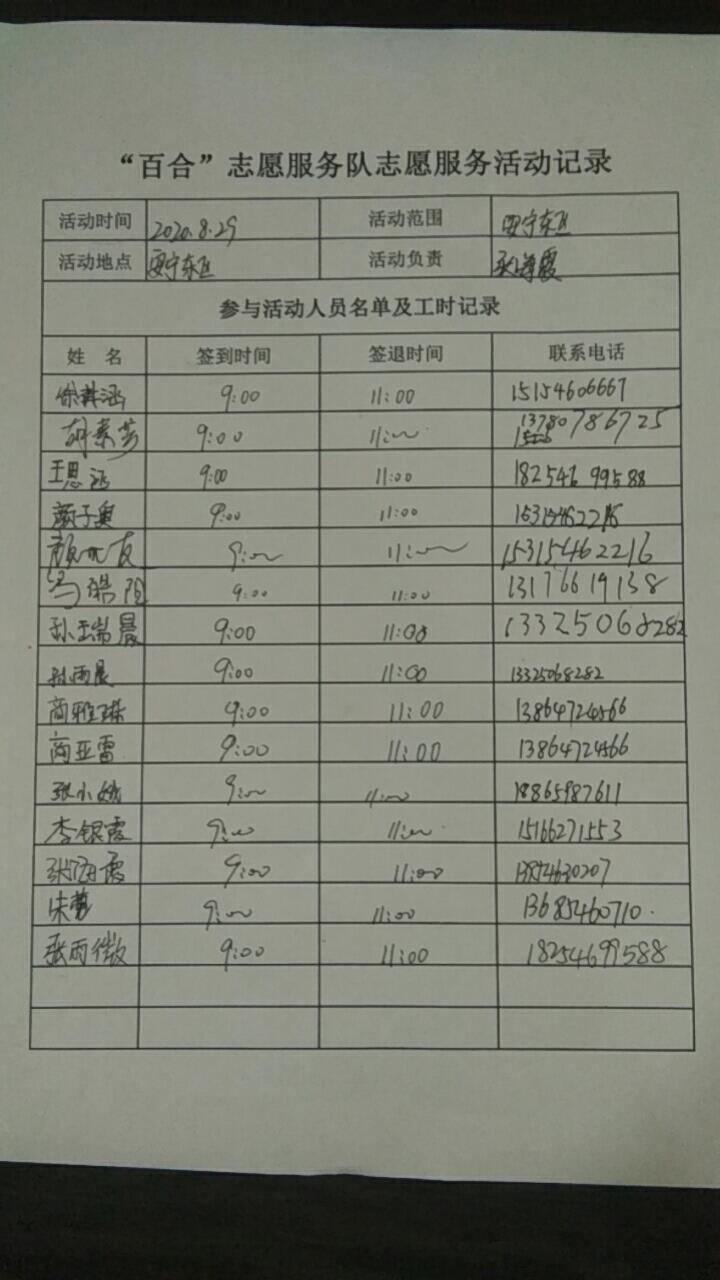 “百合”志愿服务队志愿服务活动记录
活动时间 2020.8.29 活动范围 安宁东区
活动地点 安宁东区 活动负责 张海霞
参与活动人员名单及工时记录
姓 名 签到时间 签退时间 联系电话
徐 涵 9:00 11:00 15154606667
胡素芳 9:00 11:00 13780786725
王思涵 9:00 11:00 18254699588
颜子奥 9:00 11:00 15315462216
颜 友 9:00 11:00 15315462216
马皓阳 9:00 11:00 13176619138
孙瑞晨 9:00 11:00 13325068282
孙雨晨 9:00 11:00 13325068282
商雅琪 9:00 11:00 13864724566
商亚雷 9:00 11:00 13864724566
张小娥 9:00 11:00 18865987611
李银霞 9:00 11:00 15166271553
张海霞 9:00 11:00 13854630207
朱 9:00 11:00 13685460710.
张雨微 9:00 11:00 18254699588